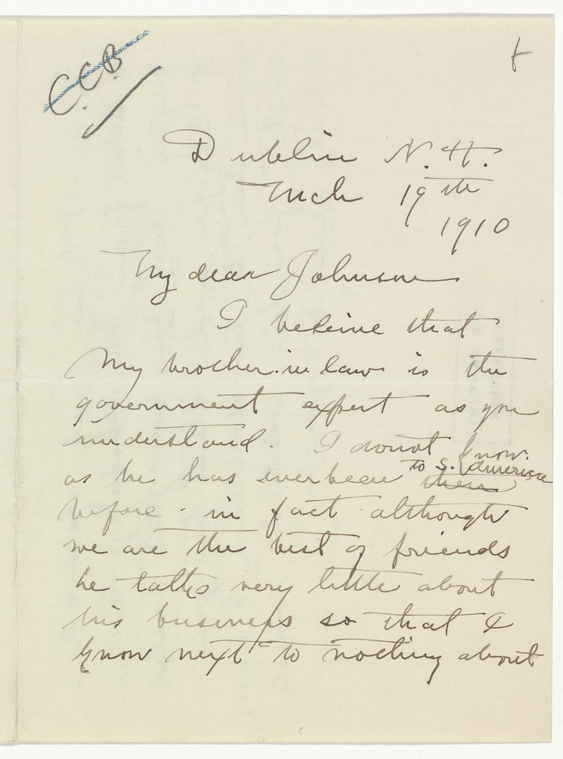 C.C.B.
Dublin N.H.
Mch 19th
1910
My dear Johnson
I believe that
my brother-in-law is the
government expert as you
understand. I do not know
as he has ever been to S. America
there
before - in fact although
we are the best of friends
he talks very little about
his business so that I
know next to nothing about